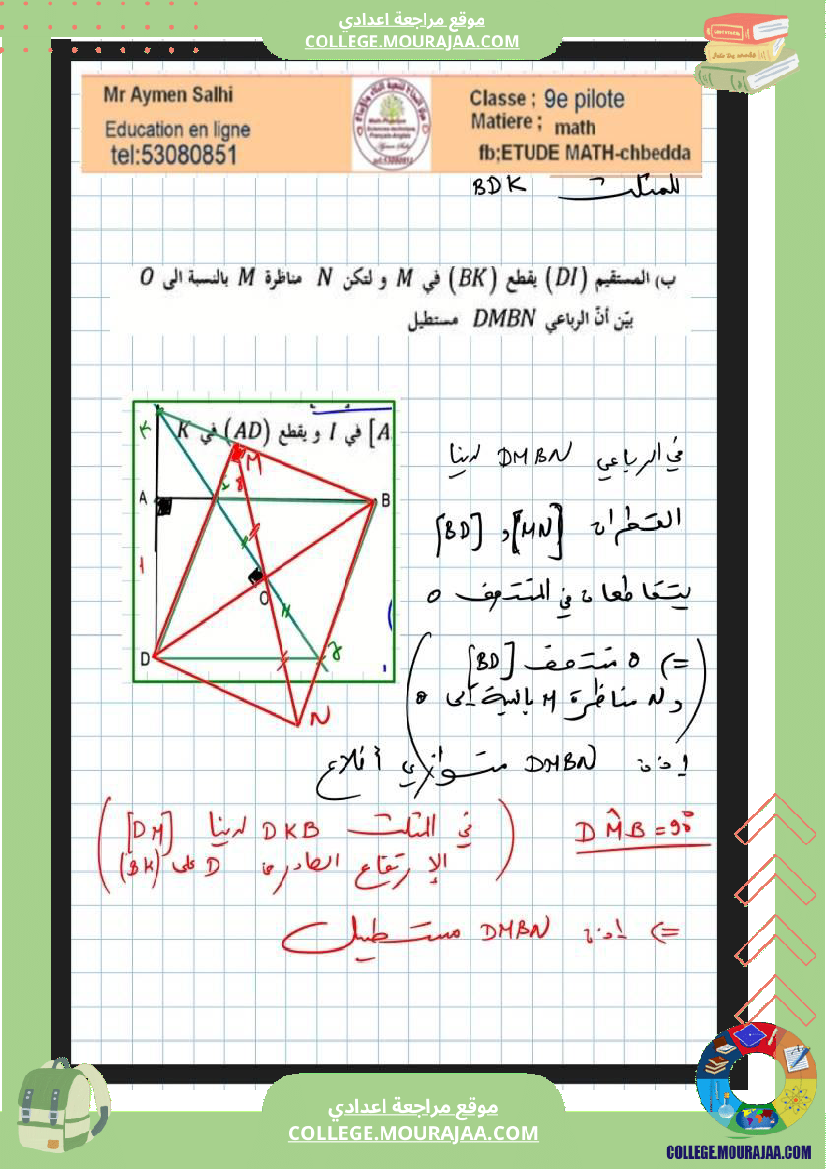 موقع مراجعة اعدادي
COLLEGE.MOURAJAA.COM
Mr Aymen Salhi
Education en ligne
tel:53080851
Classe ; 9e pilote
Matiere ; math
fb;ETUDE MATH-chbedda
للمثلث BDK
ب) المستقيم (DI) يقطع (BK) في M و لتكن N مناظرة M بالنسبة الى O
بيّن أنّ الرباعي DMBN مستطيل
A] في I و يقطع (AD) في K
K
M
A
B
O
D
N
في الرباعي DMBN لدينا
القطران [MN] و [BD]
يتقاطعان في المنتصف O
(=> O منتصف [BD]
و N مناظرة M بالنسبة إلى O)
إذن DMBN متوازي أضلاع
DM̂B = 90°
(في المثلث DKB لدينا [DM]
الإرتفاع الصادر من D على (BK))
=> إذن DMBN مستطيل
موقع مراجعة اعدادي
COLLEGE.MOURAJAA.COM
COLLEGE.MOURAJAA.COM